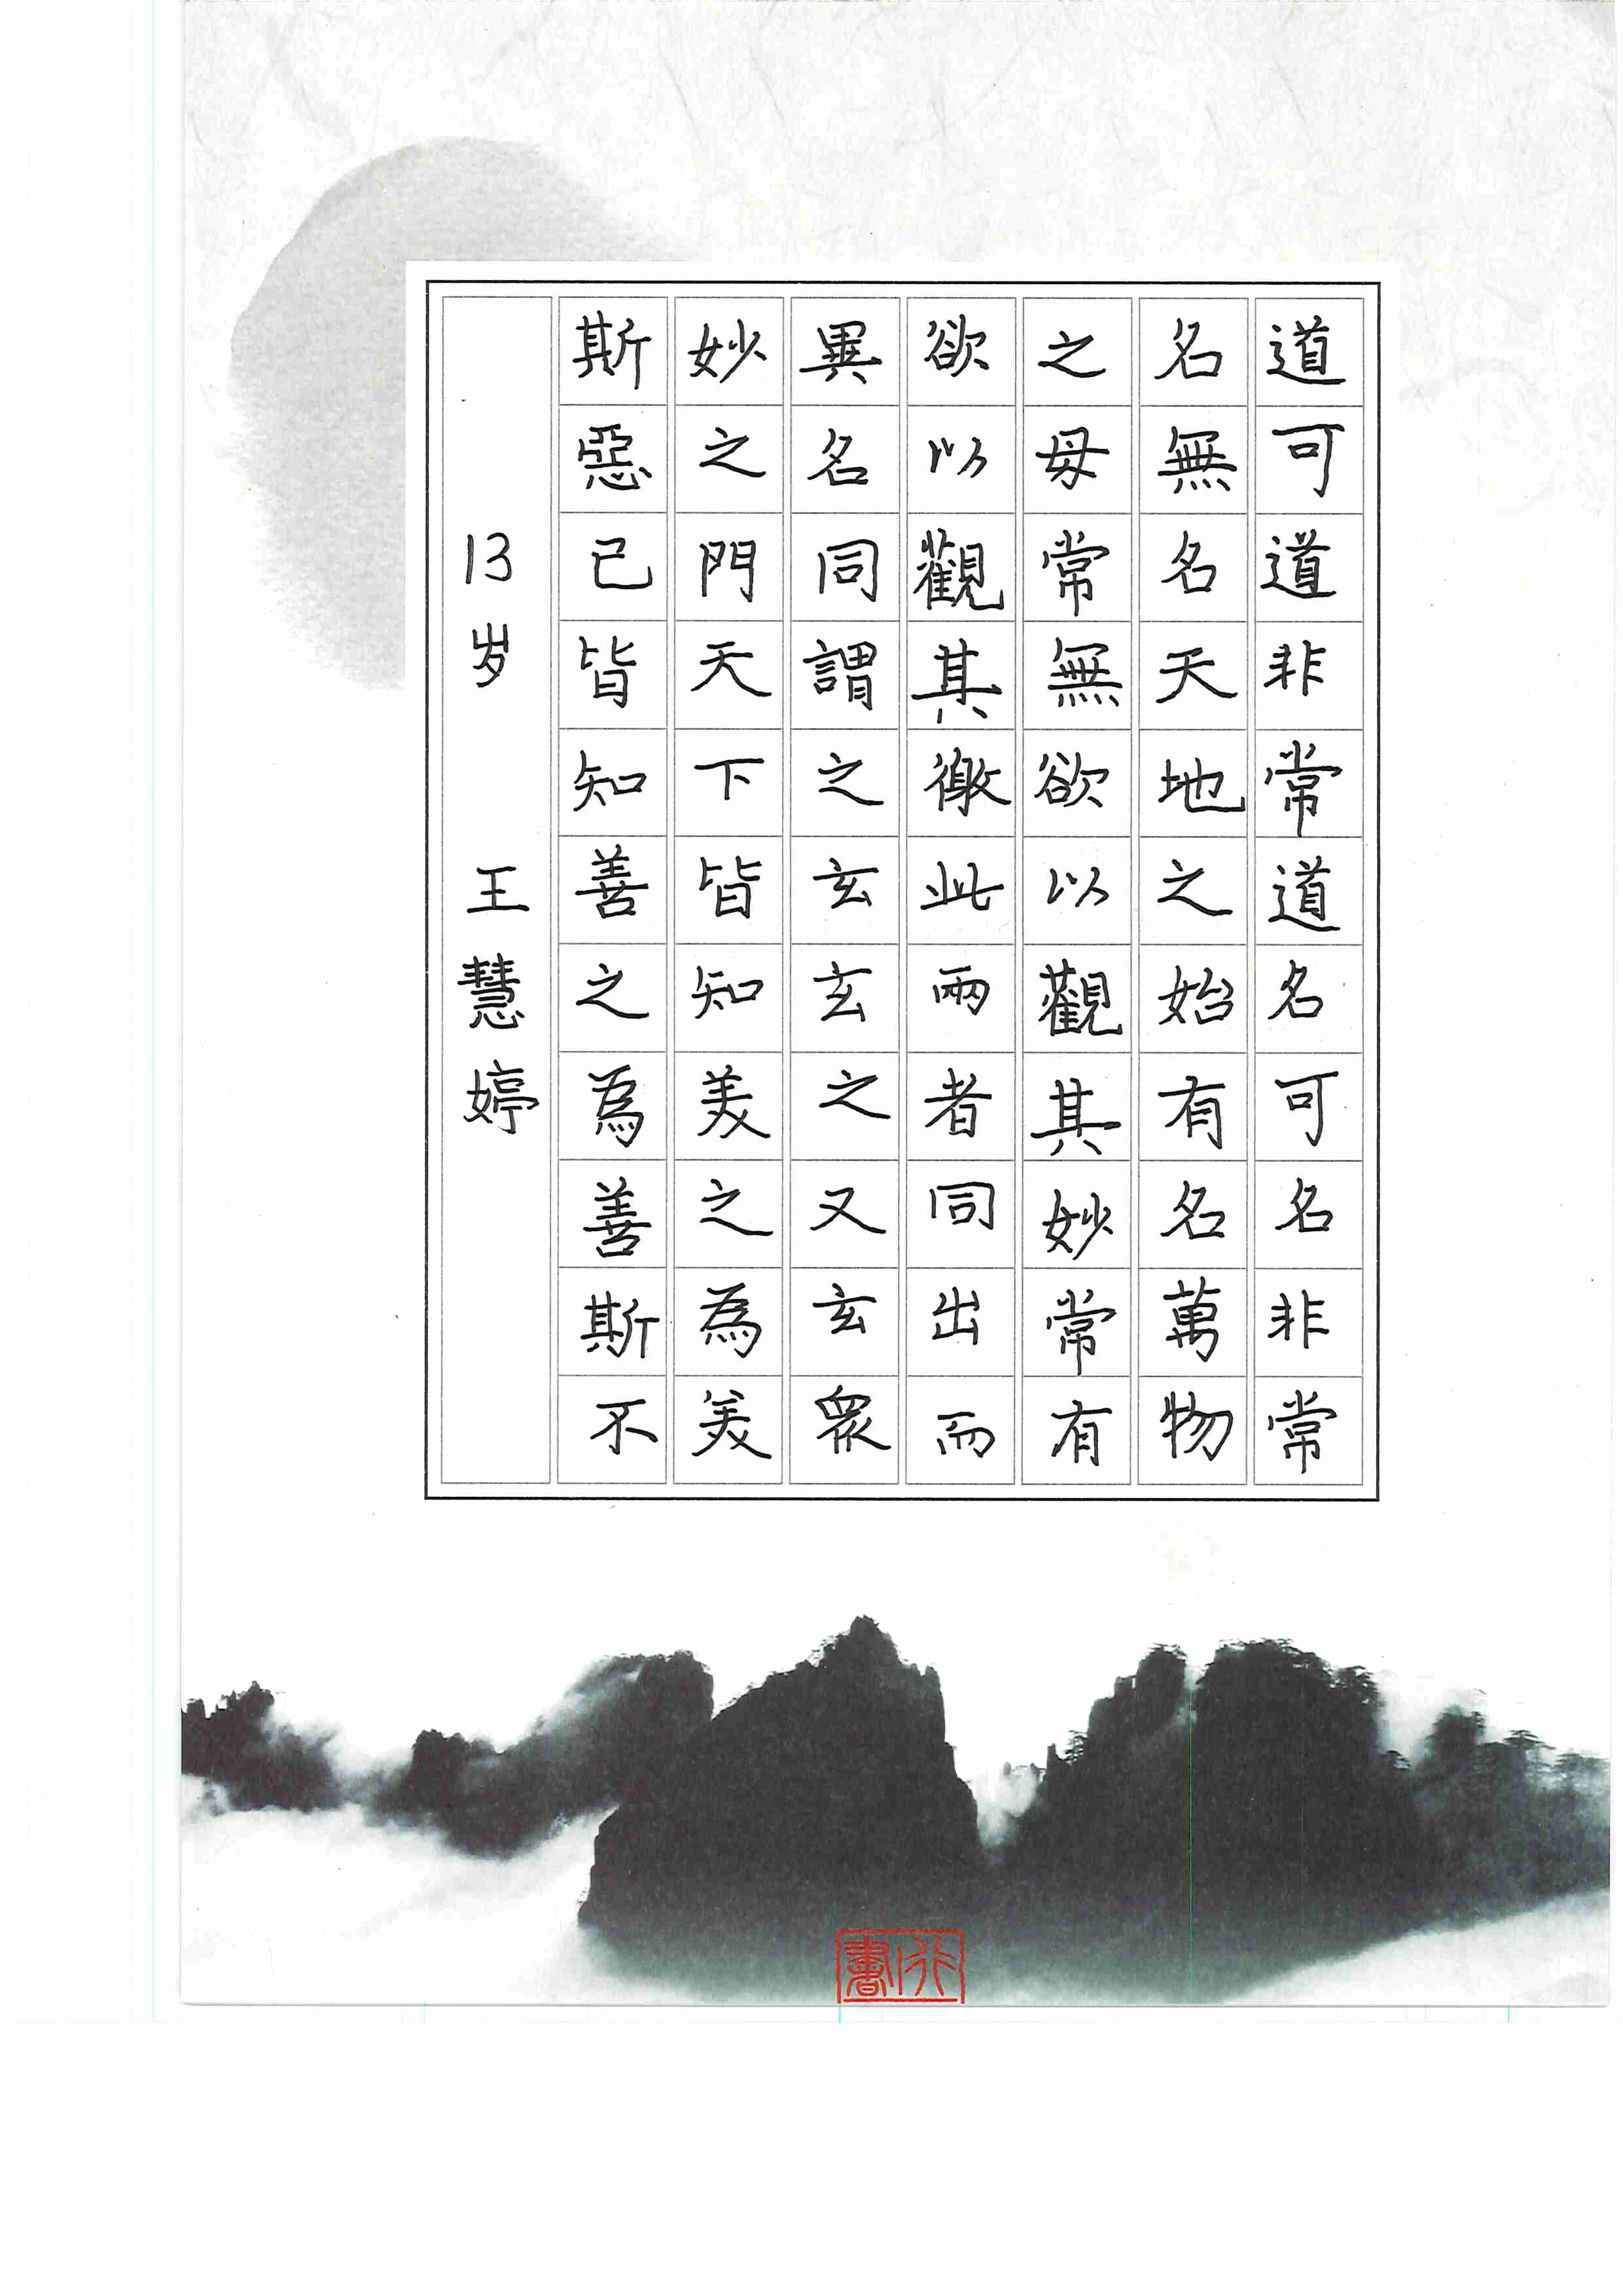 道可道非常道名可名非常
名無名天地之始有名萬物
之毋常無欲以觀其妙常有
欲以觀其徼此兩者同出而
異名同謂之玄玄之又玄衆
妙之門天下皆知美之為美
斯惡已皆知善之為善斯不
13岁 王慧婷
行書